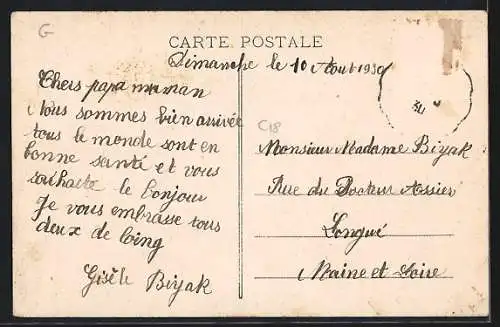 G
CARTE POSTALE
Dimanche le 10 Aout 1930
Chers papa maman
Nous sommes bien arrivée
tous le monde sont en
bonne santé et vous
souhaite le bonjour
Je vous embrasse tous
deux de loing
Gisèle Biyak
C18
30
Monsieur Madame Biyak
Rue du Docteur Assier
Longué
Maine et Loire